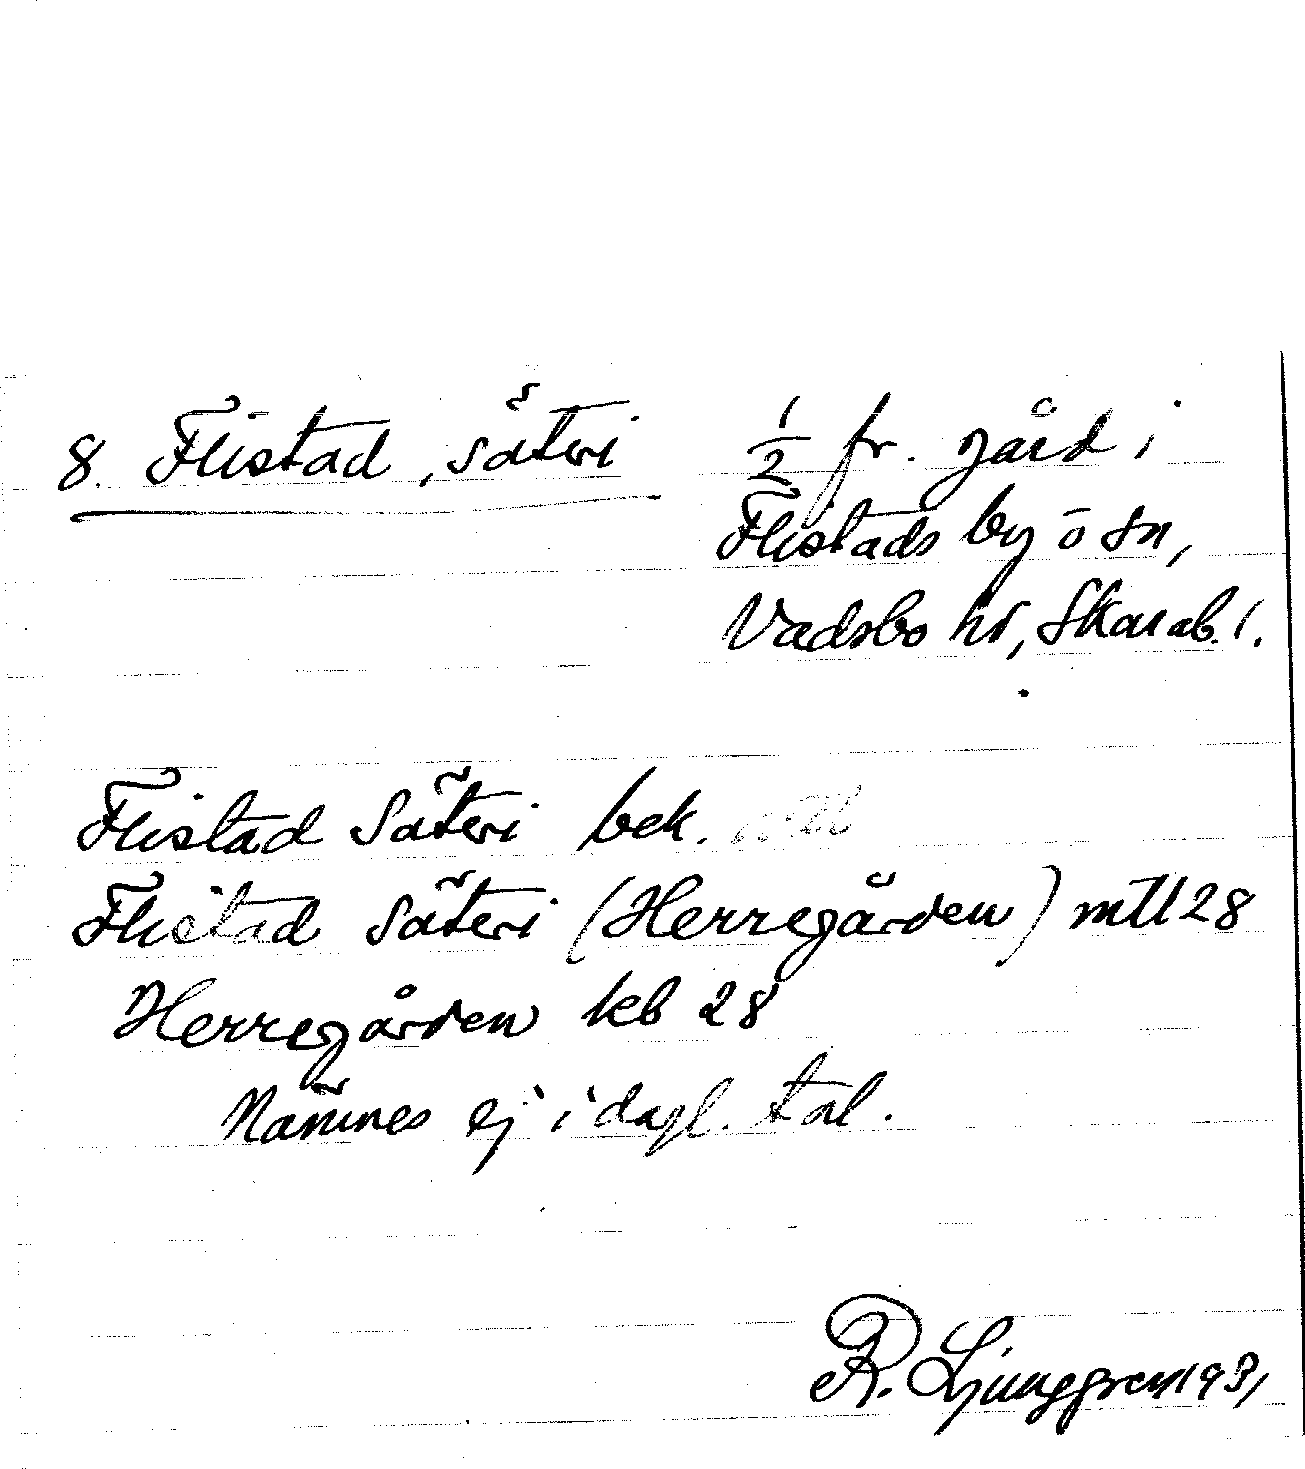 8. Flistad, säteri
1/2 fr. gård i
Flistads by o sn,
Vadsbo hd, Skarab. l.
Flistad Säteri bek.
Flistad Säteri (Herregården) mtl 28
Herregården keb 28
Nämnes ej i dagl. tal.
R. Ljunggren 1931